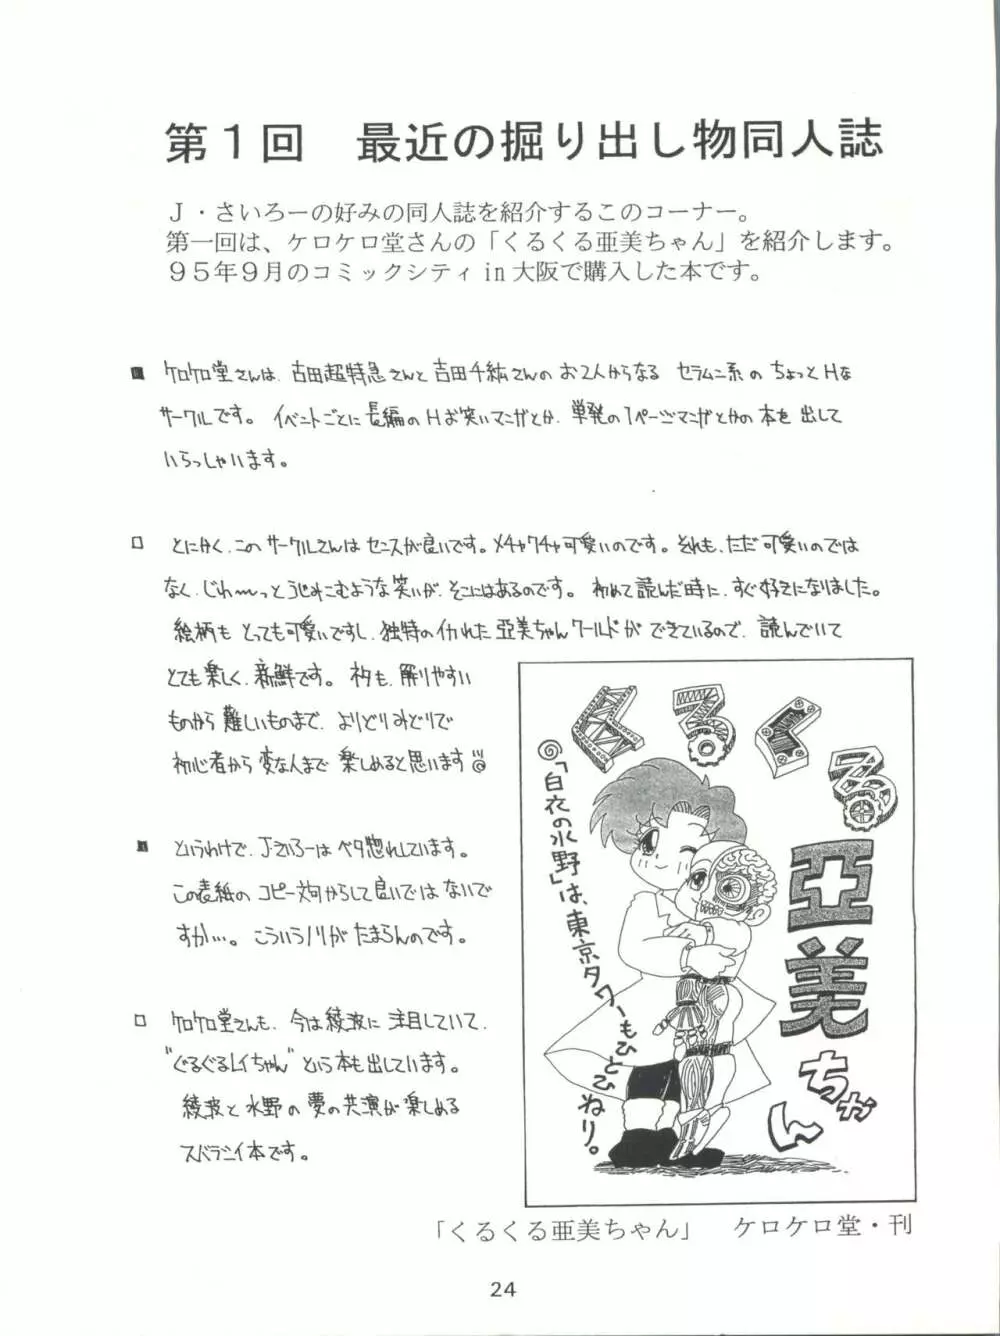 第１回　最近の掘り出し物同人誌
Ｊ・さいろーの好みの同人誌を紹介するこのコーナー。
第一回は、ケロケロ堂さんの「くるくる亜美ちゃん」を紹介します。
９５年９月のコミックシティ in 大阪で購入した本です。
■ ケロケロ堂さんは、古田超特急さんと吉田千紘さんのお2人からなる セラムン系の ちょっとHな
サークルです。イベントごとに長編のHお笑いマンガとか、単発の1ページマンガとかの本を出して
いらっしゃいます。
□ とにかく、このサークルさんは センスが良いです。メチャクチャ可愛いのです。それも、ただ可愛いのでは
なく、じわ〜っと うじみこむような笑いが、そこにはあるのです。初めて読んだ時に、すぐ好きになりました。
絵柄も とっても可愛いですし、独特のイカれた 亞美ちゃんワールドが できているので、読んでいて
とても楽しく、新鮮です。ネタも、解りやすい
ものから 難しいものまで、よりどりみどりで
初心者から変な人まで 楽しめると思います
■ というわけで、J・さいろーは ベタ惚れしています。
この表紙の コピー文句からして良いでは ないで
すか…。こういうノリが たまらんのです。
□ ケロケロ堂さんも、今は綾波に 注目していて、
“ぐるぐるレイちゃん” という本も出しています。
綾波と水野の 夢の共演が楽しめる
スバラシイ本です。
くるくる
亞美ちゃん
「白衣の水野」は、東京タワーもひとひねり。
「くるくる亜美ちゃん」　ケロケロ堂・刊
24